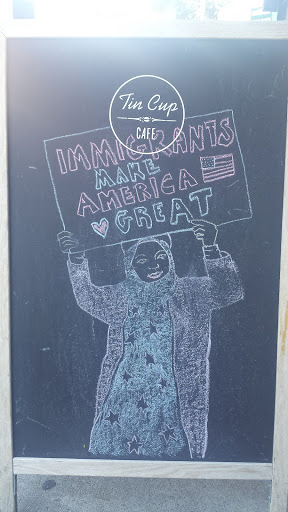 Tin Cup
CAFE
IMMIGRANTS
MAKE
AMERICA
GREAT